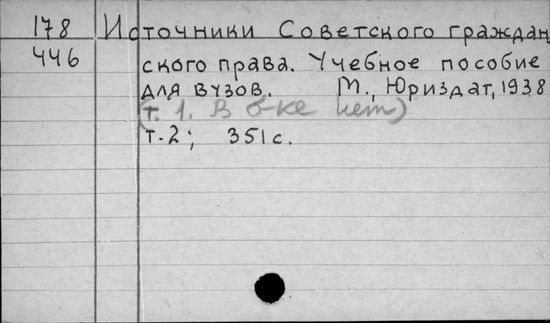 178 Источники Советского граждан
446 ского права. Учебное пособие
для вузов. М., Юриздат, 1938
(т. 1. В б-ке нет)
т.2; 351 с.